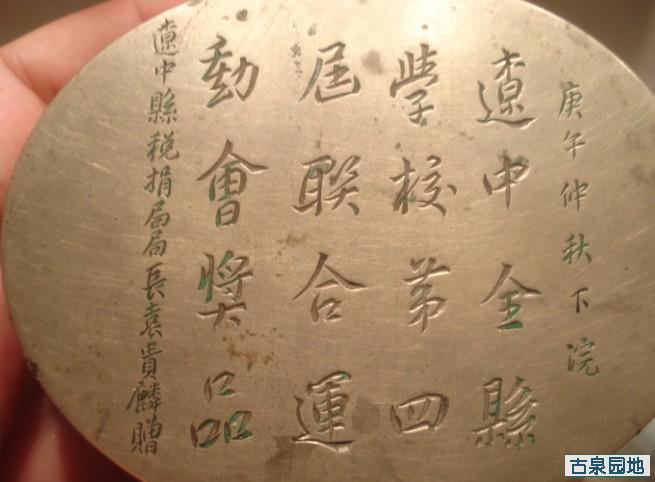 庚午仲秋下浣
遼中全縣
學校第四
屆聯合運
動會獎品
遼中縣稅捐局局長袁貴麟贈
古泉园地